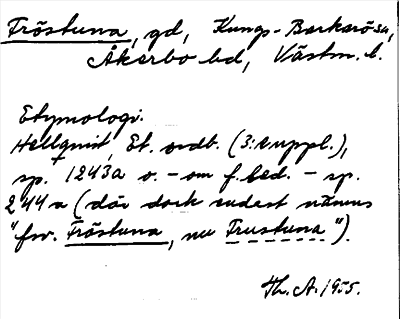 Fröstuna, gd, Kungs-Barkarösn,
Åkerbo hd, Västm. l.
Etymologi.
Hellquist, Et. ordb. (3:e uppl.),
sp. 1243a o. - om f. led. - sp.
244a (där dock endast nämns
"fsv. Fröstuna, nu Frustuna").
Th. A. 1955.